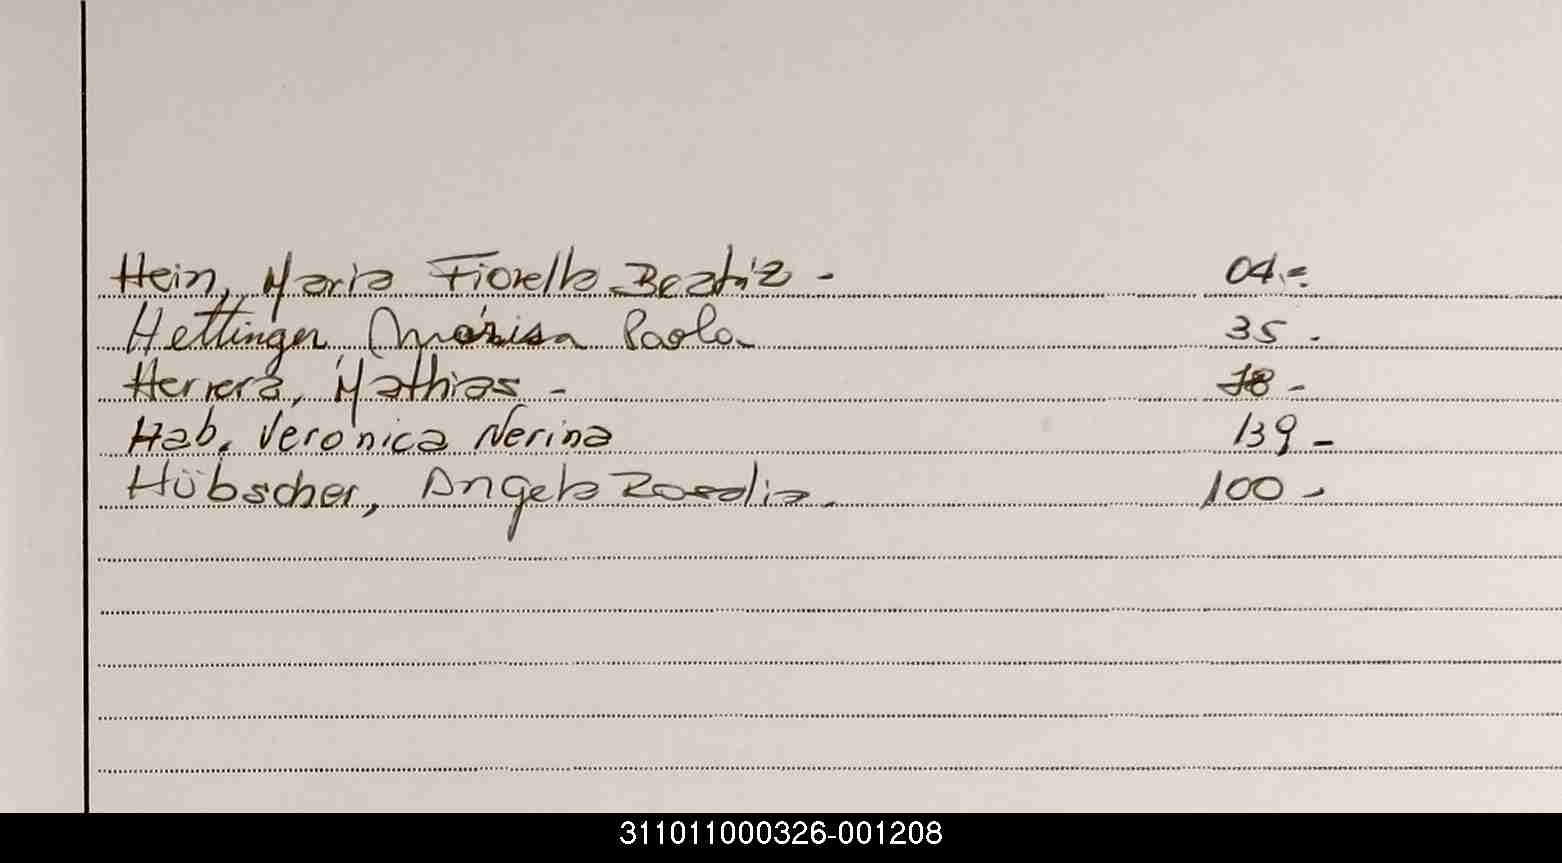 Hein, Maria Fiorella Beatriz - 04.=
Hettinger, Marisa Paola 35 -
Herrera, Mathias - 78 -
Hab, Veronica Nerina 139 -
Hübscher, Angela Rosalia. 100 -
311011000326-001208